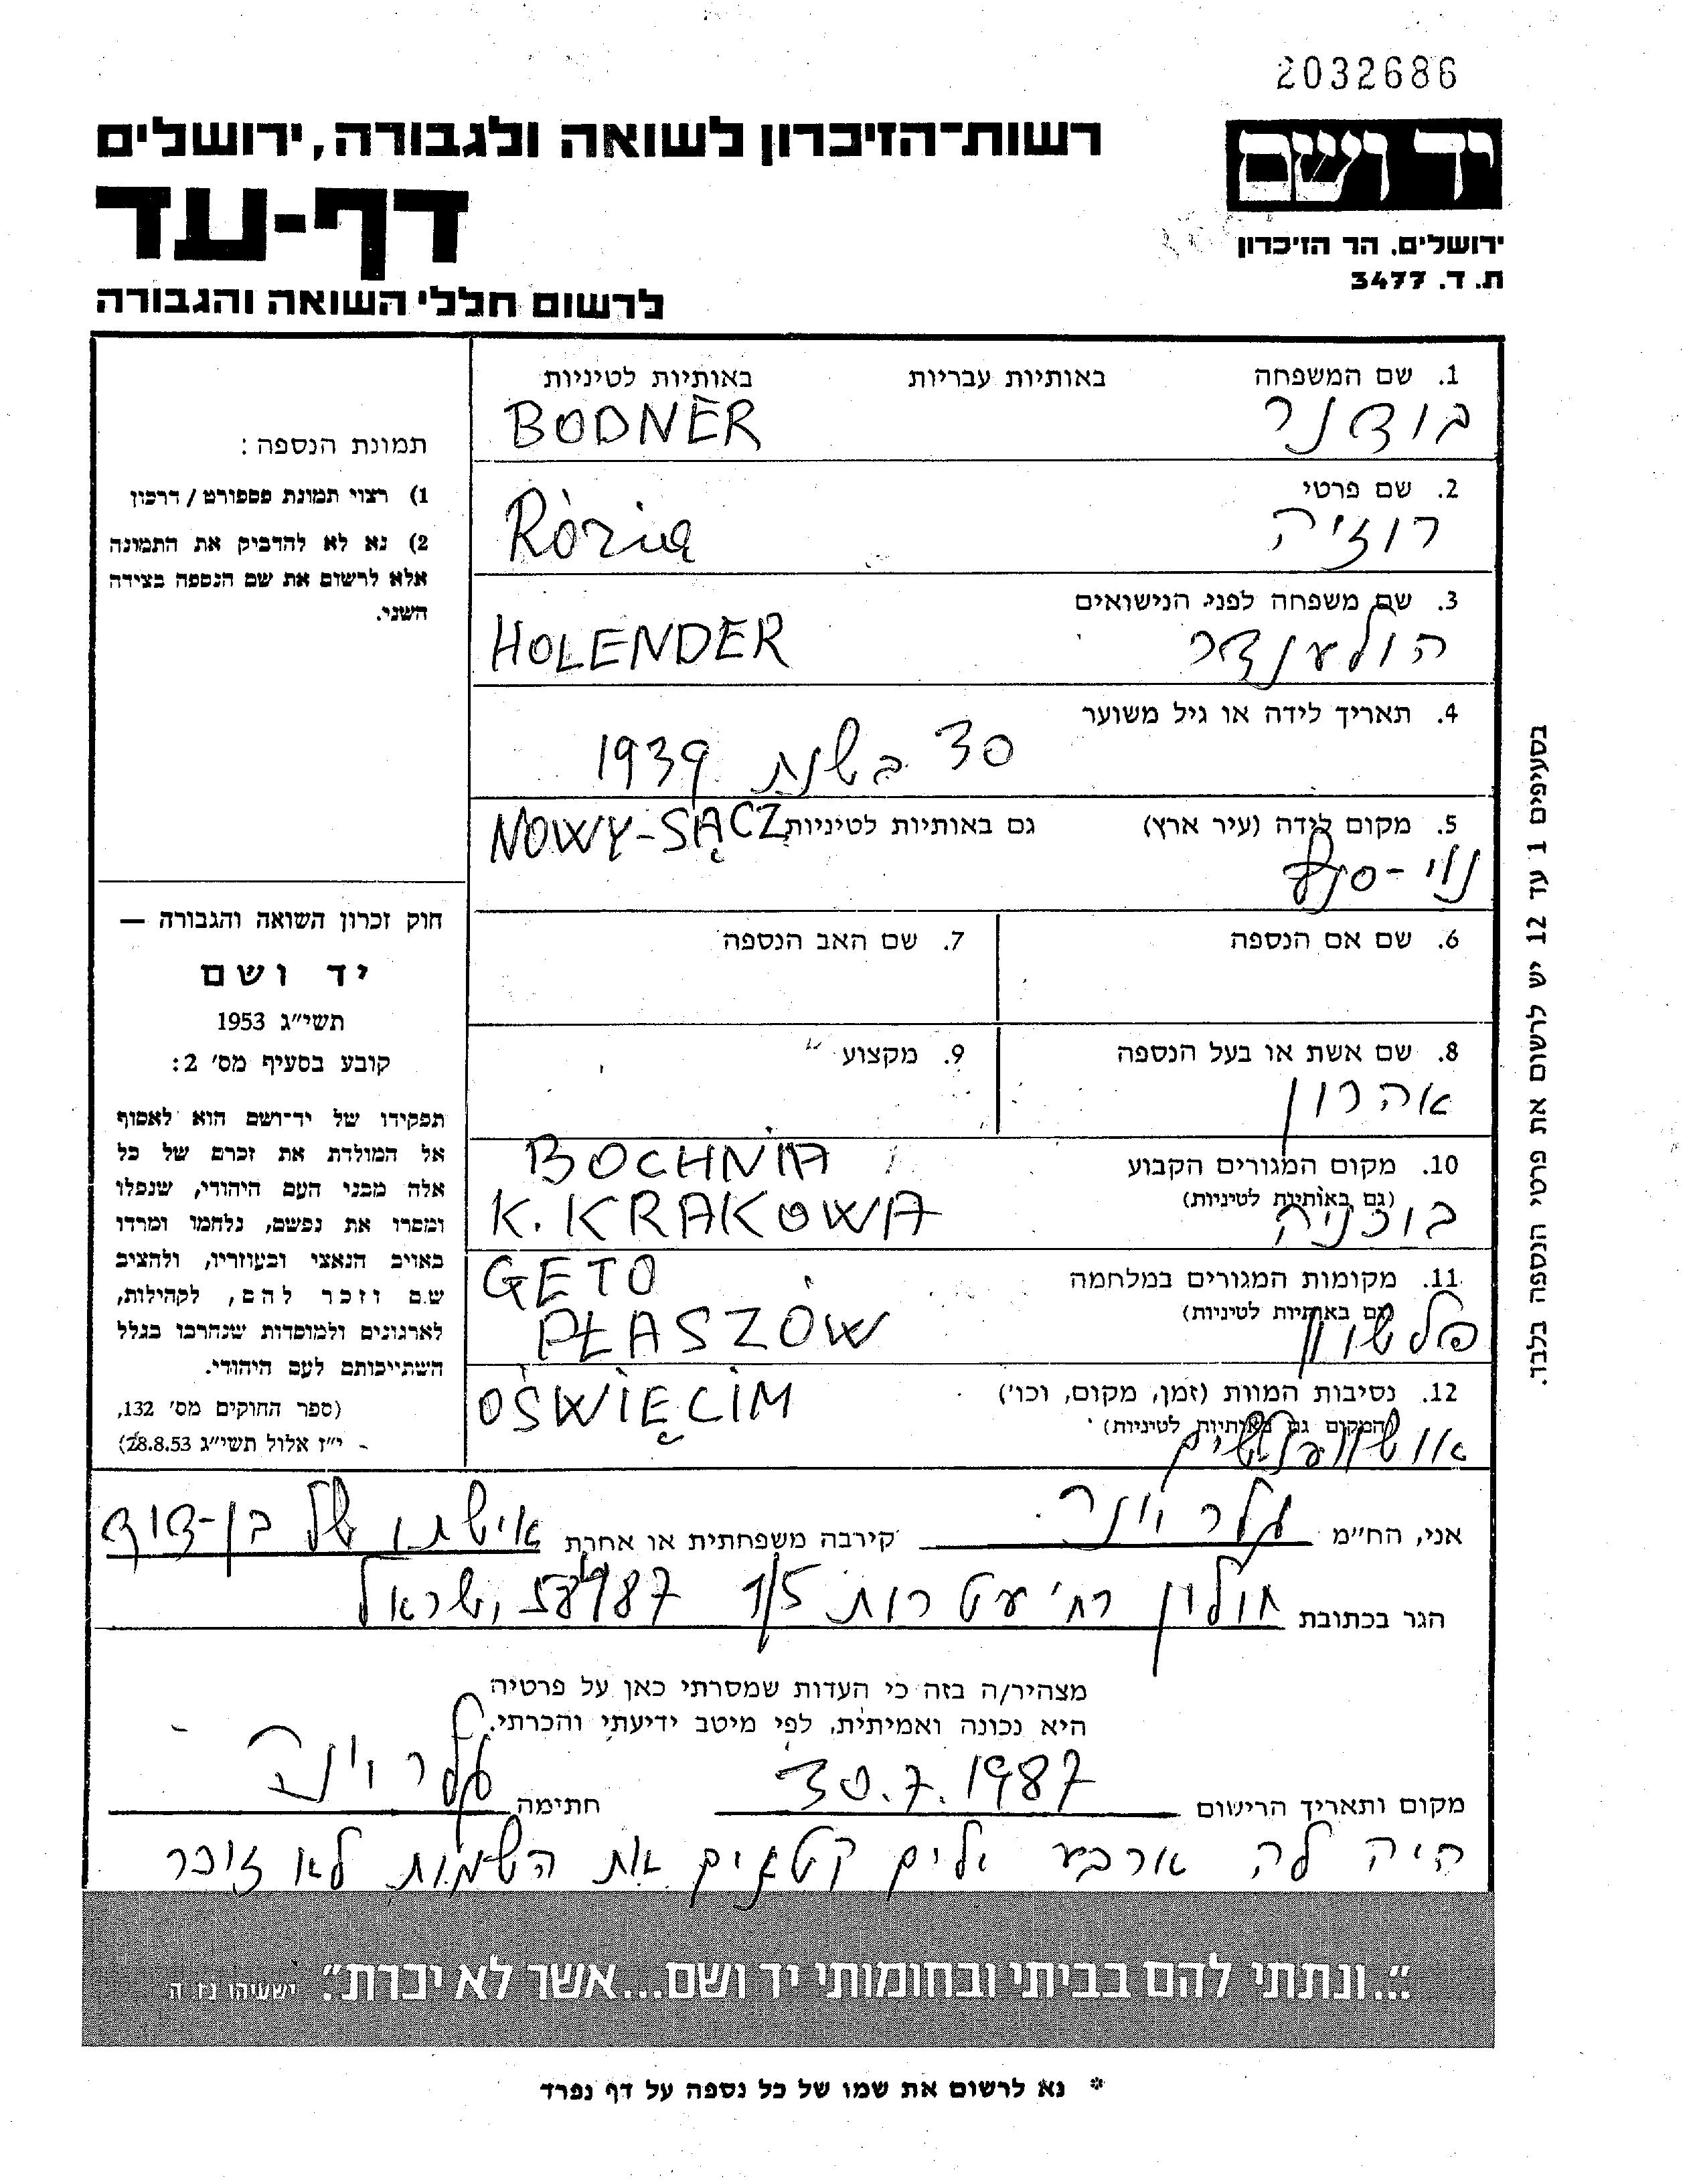 2032686
יד ושם
ירושלים, הר הזיכרון
ת.ד. 3477
רשות־הזיכרון לשואה ולגבורה, ירושלים
דף-עד
לרשום חללי השואה והגבורה
1. שם המשפחה באותיות עבריות באותיות לטיניות
בודנר BODNER
2. שם פרטי
רוזיה Rózia
3. שם משפחה לפני הנישואים
הולענדר HOLENDER
4. תאריך לידה או גיל משוער
30 בשנת 1939
5. מקום לידה (עיר ארץ) גם באותיות לטיניות NOWY-SĄCZ
נוי-סנץ
6. שם אם הנספה 7. שם האב הנספה
8. שם אשת או בעל הנספה 9. מקצוע
אהרון
10. מקום המגורים הקבוע BOCHNIA
(גם באותיות לטיניות) K. KRAKOWA
בוכניה
11. מקומות המגורים במלחמה GETO
(גם באותיות לטיניות) PŁASZÓW
פלשוון
12. נסיבות המוות (זמן, מקום, וכו') OŚWIĘCIM
(המקום גם באותיות לטיניות)
תמונת הנספה:
1) רצוי תמונת פספורט / דרכון
2) נא לא להדביק את התמונה
אלא לרשום את שם הנספה בצידה
השני.
חוק זכרון השואה והגבורה —
יד ושם
תשי״ג 1953
קובע בסעיף מס׳ 2:
תפקידו של יד־ושם הוא לאסוף
אל המולדת את זכרם של כל
אלה מבני העם היהודי, שנפלו
ומסרו את נפשם, נלחמו ומרדו
באויב הנאצי ובעוזריו, ולהציב
שם וזכר להם, לקהילות,
לארגונים ולמוסדות שנחרבו בגלל
השתייכותם לעם היהודי.
(ספר החוקים מס׳ 132,
י״ז אלול תשי״ג 28.8.53)
בסעיפים 1 עד 12 יש לרשום את פרטי הנספה בלבד.
אני, הח״מ קירבה משפחתית או אחרת אישתו של בן-דוד
הגר בכתובת חולון רח' עטרות 1/5 ישראל
מצהיר/ה בזה כי העדות שמסרתי כאן על פרטיה
היא נכונה ואמיתית, לפי מיטב ידיעתי והכרתי.
מקום ותאריך הרישום 30.7.1987 חתימה
היה לה ארבע ילים קטנים את השמות לא זוכר
״...ונתתי להם בביתי ובחומותי יד ושם...אשר לא יכרת״. ישעיהו נו ה
* נא לרשום את שמו של כל נספה על דף נפרד